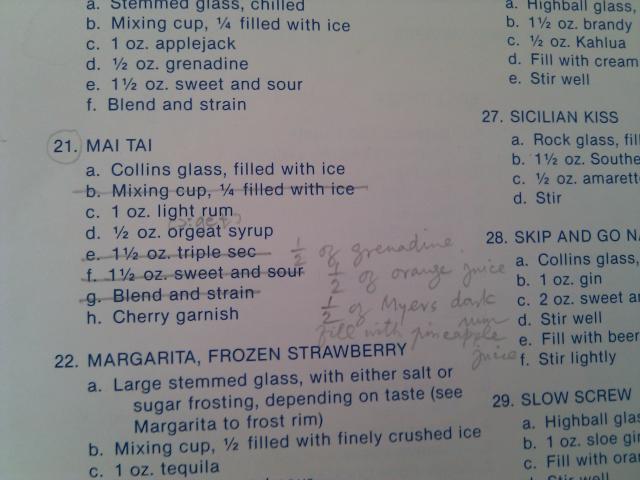 a. Stemmed glass, chilled
b. Mixing cup, ¼ filled with ice
c. 1 oz. applejack
d. ½ oz. grenadine
e. 1½ oz. sweet and sour
f. Blend and strain
21. MAI TAI
a. Collins glass, filled with ice
b. Mixing cup, ¼ filled with ice
c. 1 oz. light rum
d. ½ oz. orgeat syrup
e. 1½ oz. triple sec ½ of grenadine.
f. 1½ oz. sweet and sour ½ of orange juice
g. Blend and strain ½ of Myers dark rum
h. Cherry garnish fill with pineapple juice
22. MARGARITA, FROZEN STRAWBERRY
a. Large stemmed glass, with either salt or
sugar frosting, depending on taste (see
Margarita to frost rim)
b. Mixing cup, ½ filled with finely crushed ice
c. 1 oz. tequila
a. Highball glass,
b. 1½ oz. brandy
c. ½ oz. Kahlua
d. Fill with cream
e. Stir well
27. SICILIAN KISS
a. Rock glass, fil
b. 1½ oz. Southe
c. ½ oz. amarett
d. Stir
28. SKIP AND GO N
a. Collins glass,
b. 1 oz. gin
c. 2 oz. sweet a
d. Stir well
e. Fill with beer
f. Stir lightly
29. SLOW SCREW
a. Highball glas
b. 1 oz. sloe gi
c. Fill with ora
d. Stir well